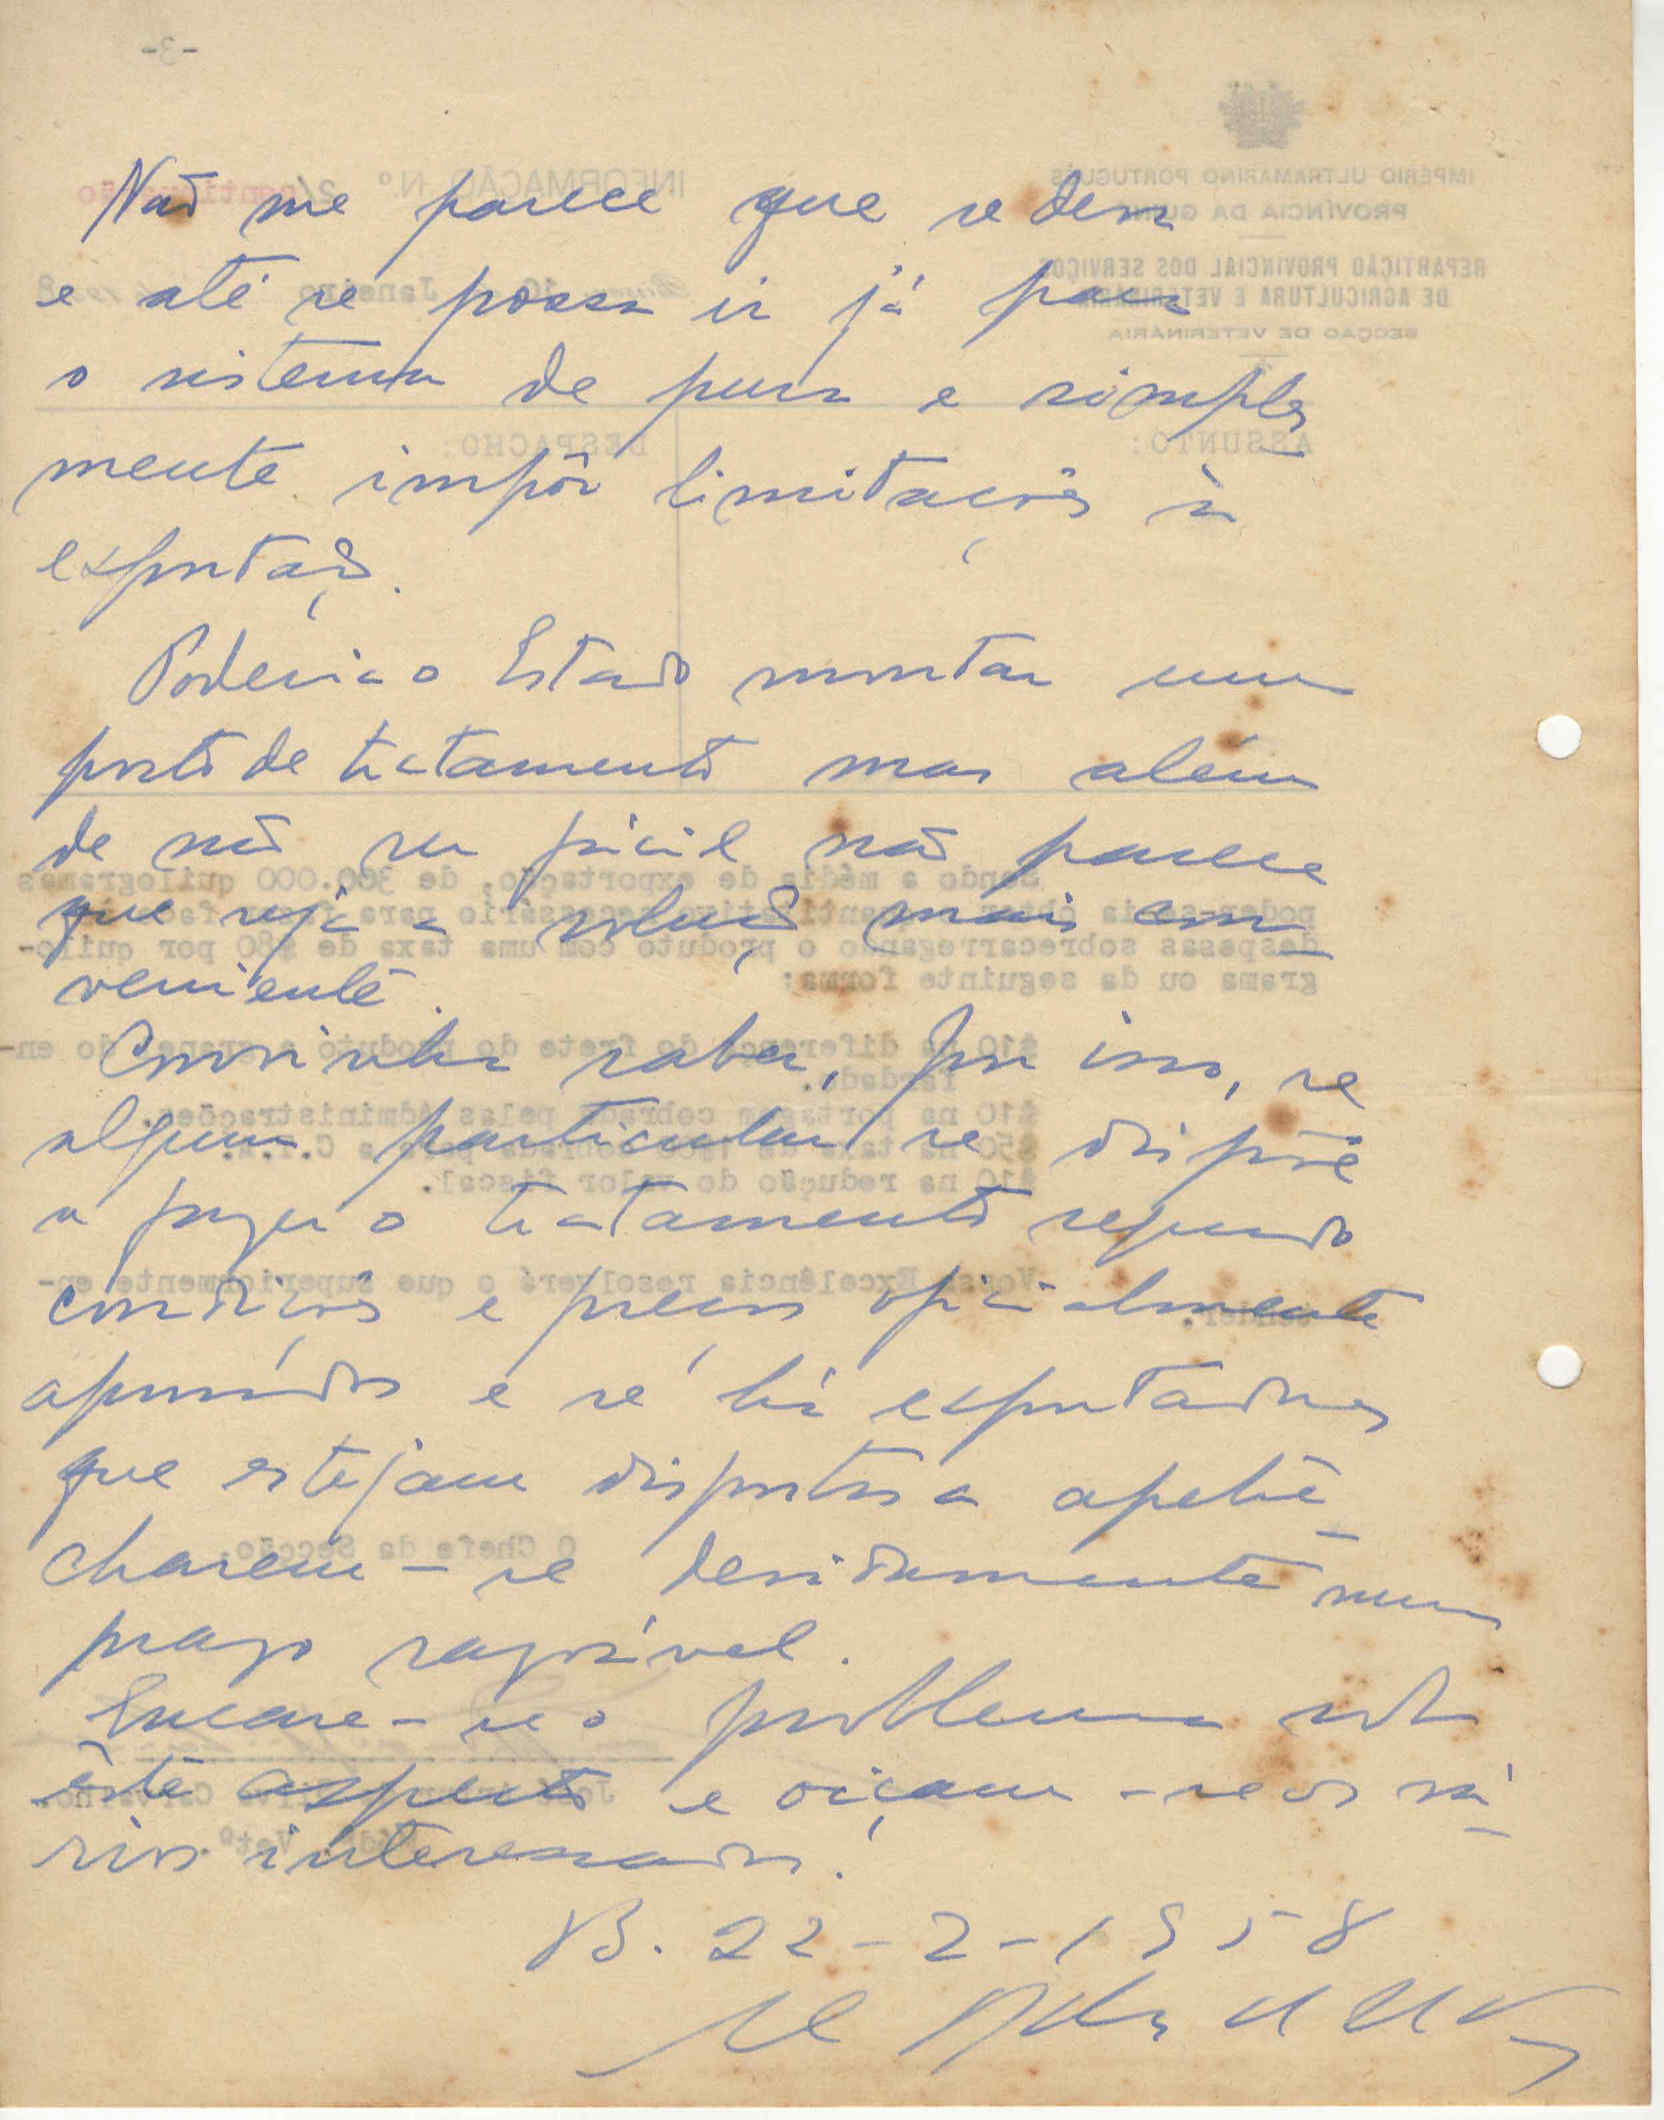 Não me parece que se deva
e até se possa ir já para
o sistema de pura e simples
mente impôr limitações à
exportação.
Poderia o Estado montar um
posto de tratamento mas além
de não ser fácil não parece
que seja a solução mais con-
veniente.
Convinha saber, por isso, se
algum particular se dispõe
a fazer o tratamento segundo
condições e preços oficialmente
aprovados e se há exportadores
que estejam dispostos a apetre-
charem-se devidamente num
prazo razoável.
Encare-se o problema sob
êste aspecto e oiçam-se os vá-
rios interessados!
B. 22-2-1958